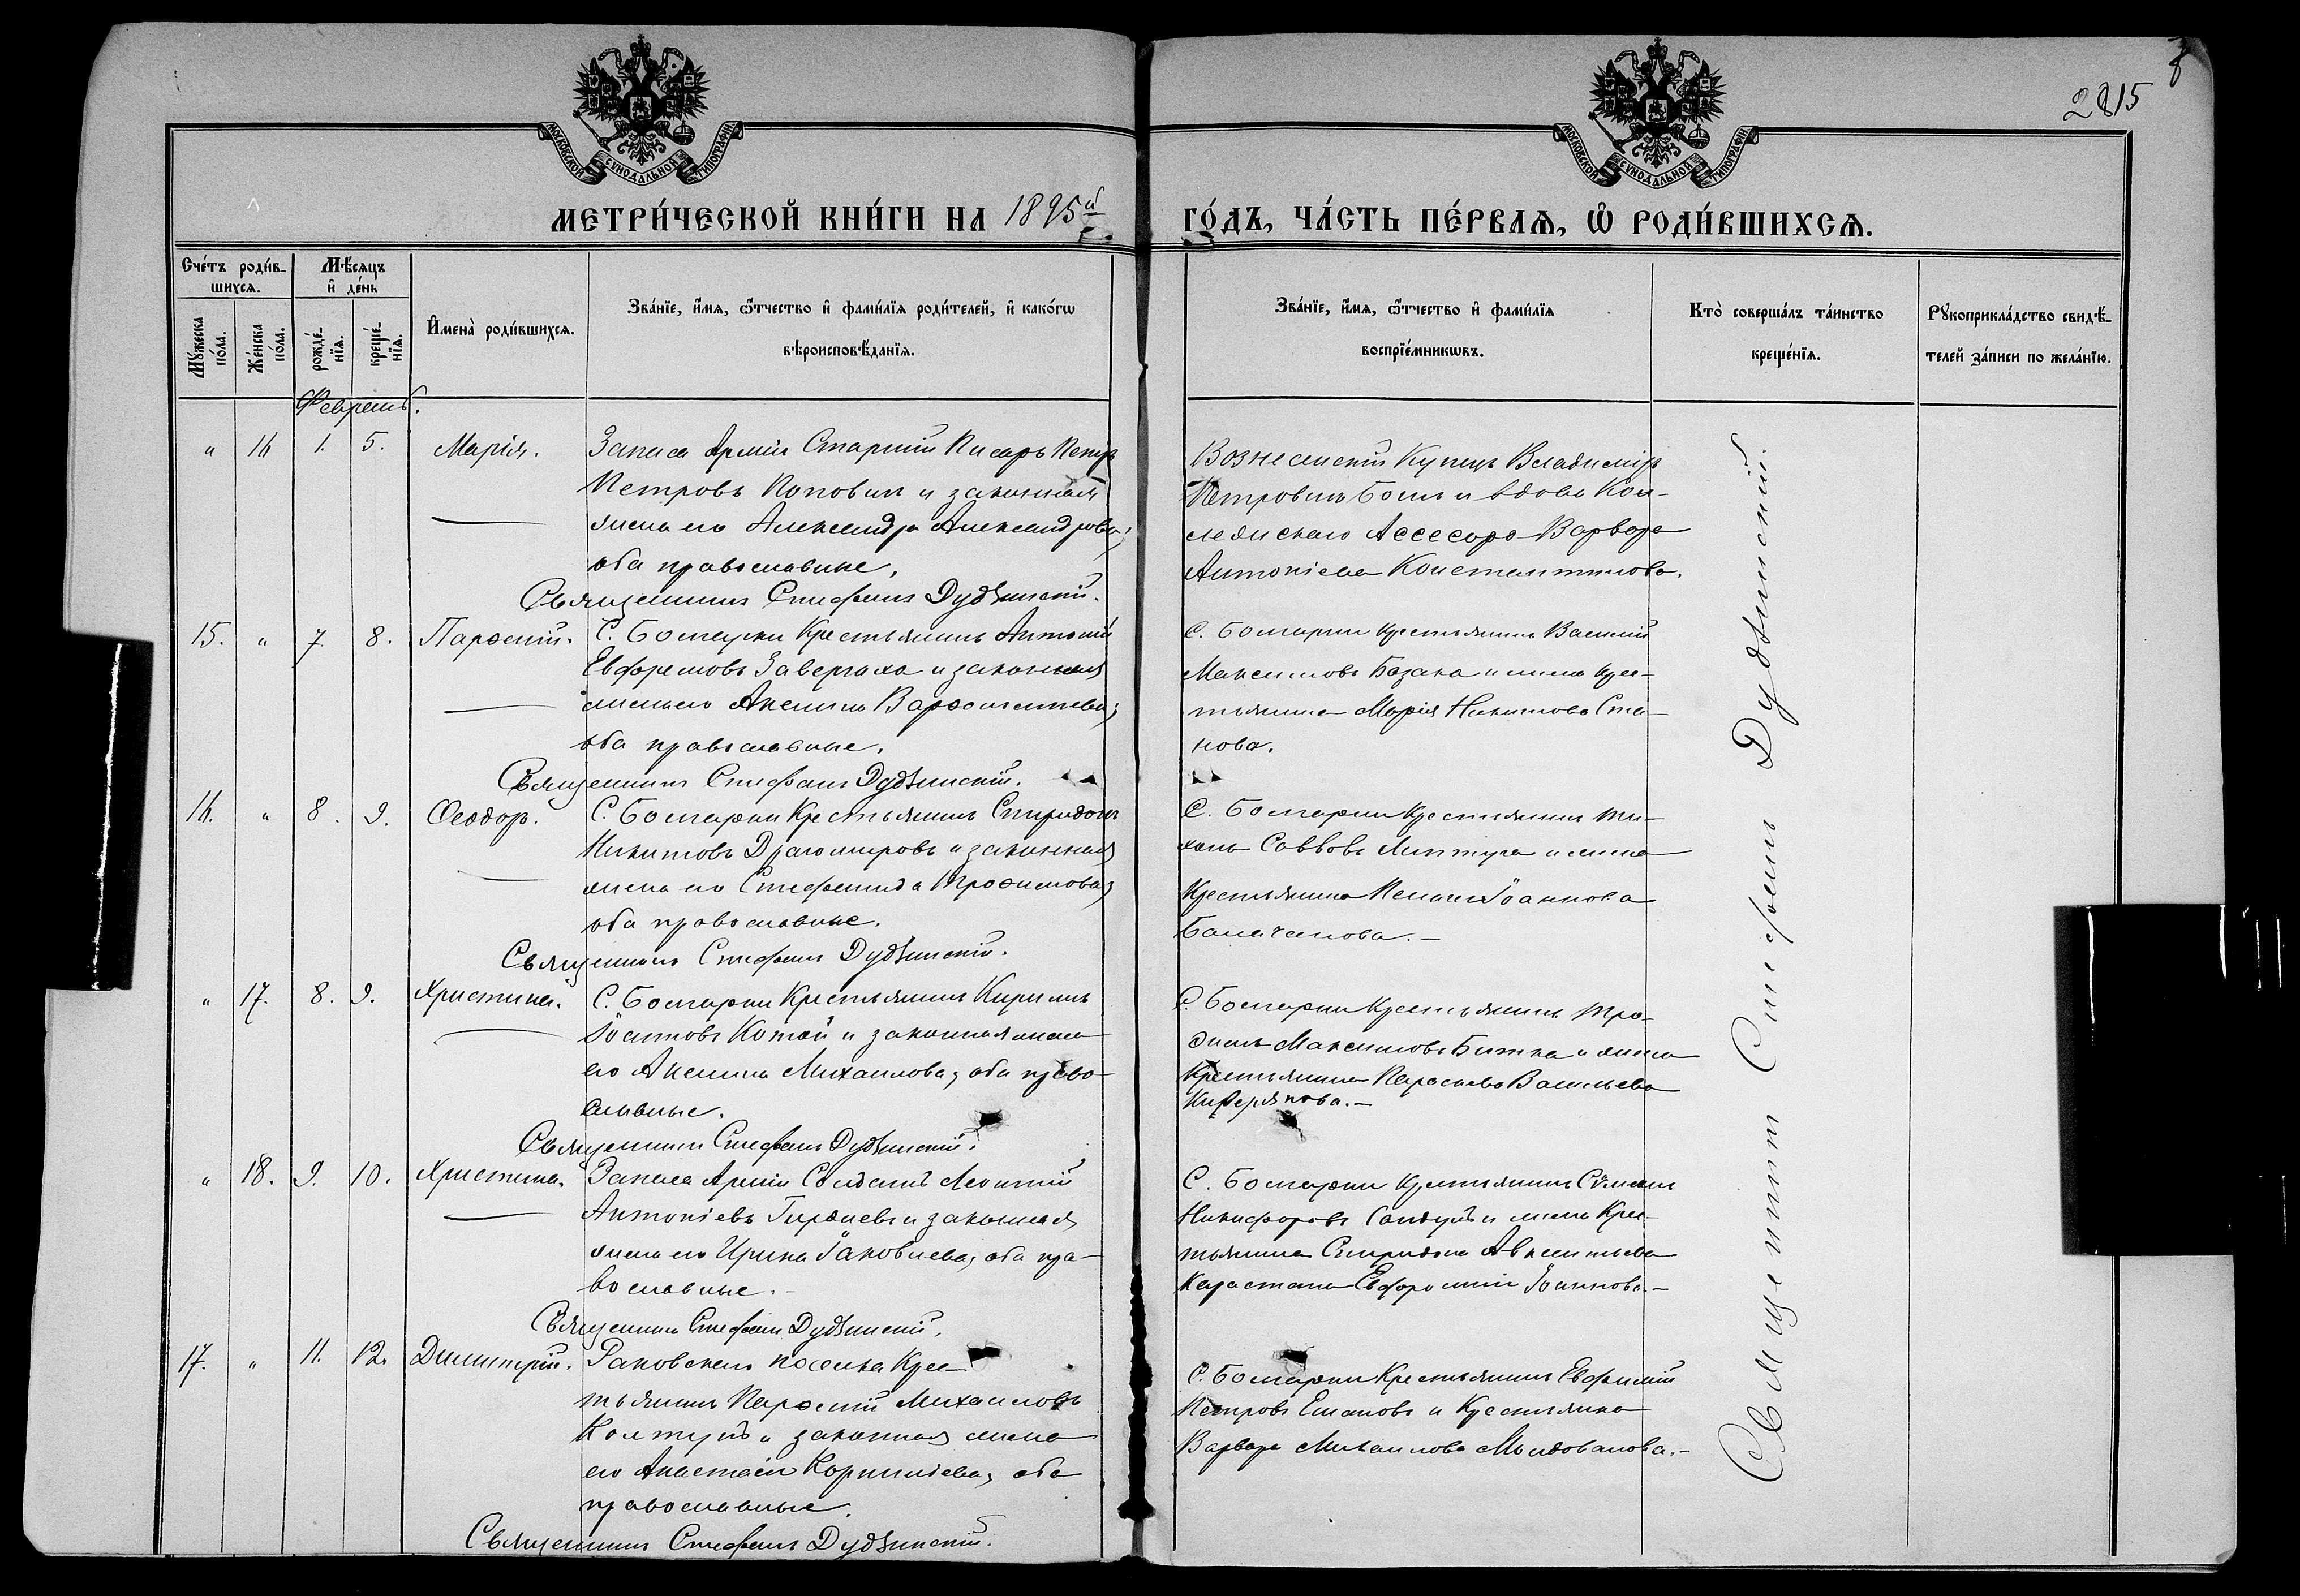 8
2815
МОСКОВСКОЙ СѴНОДАЛЬНОЙ ТИПОГРАФІИ
МОСКОВСКОЙ СѴНОДАЛЬНОЙ ТИПОГРАФІИ
МЕТРИ́ЧЕСКОЙ КНИ́ГИ НА 1895й
ГО́ДЪ, ЧА́СТЬ ПЕ́РВАѦ, Ѡ҆ РОДИ́ВШИХСѦ.
Сче́тъ роди́в-
шихсѧ.
Мꙋ́жеска по́ла.
Же́нска по́ла.
Мѣ́сѧцъ
и҆ де́нь
рожде́-нїѧ.
креще́-нїѧ.
И҆мена̀ роди́вшихсѧ.
Зва́нїе, и҆́мѧ, ѻ҆́тчество и҆ фами́лїѧ роди́телей, и҆ како́гѡ
вѣроисповѣ́данїѧ.
Зва́нїе, и҆́мѧ, ѻ҆́тчество и҆ фами́лїѧ
воспрїе́мникѡвъ.
Кто̀ соверша́лъ та́инство
креще́нїѧ.
Рꙋкоприкла́дство свидѣ́-
телей за́писи по жела́нїю.
Февраль.
" 16 1. 5. Марія.
Запаса Арміи Старшій Писарь Петръ
Петровъ Поповичъ и законная
жена его Александра Александрова;
оба православные.
Священникъ Стефанъ Дудзинскій.
Вознесенскій Купецъ Владиміръ
Петровичъ и вдова Кол-
лежскаго Ассесора Варвара
Антоніева Константинова.
15. " 7. 8. Парѳеній.
С. Болгарки Крестьянинъ Антоній
Евфремовъ Завертаха и законная
жена его Аксинія Варѳоломеева;
оба православные.
Священникъ Стефанъ Дудзинскій.
С. Болгарки крестьянинъ Василій
Максимовъ Базака и жена крес-
тьянина Марія Никитова Ста-
нова.
16. " 8. 9. Ѳеодоръ.
С. Болгарки Крестьянинъ Спиридонъ
Никитовъ Драгомировъ и законная
жена его Стефанида Трофимова;
оба православные.
Священникъ Стефанъ Дудзинскій.
С. Болгарки Крестьянинъ Ми-
хаилъ Саввовъ и жена
Крестьянина Іоаннова
" 17. 8. 9. Христина.
С. Болгарки Крестьянинъ Кириллъ
Котой и законная жена
его Аксинія Михаилова; оба право-
славные.
Священникъ Стефанъ Дудзинскій.
С. Болгарки Крестьянинъ Тро-
фимъ Максимовъ Битка и жена
Крестьянина Параскева Васильева
" 18. 9. 10. Христина.
Запаса Арміи Солдатъ Леонтій
Антоніевъ и законная
жена его Ирина Іаковлева; оба пра-
вославные.
Священникъ Стефанъ Дудзинскій.
С. Болгарки Крестьянинъ
Никифоровъ и жена Крес-
тьянина Спиридона Авксентьева
Карастана Евфросинія Іоаннова.
17. " 11. 12. Димитрій.
Раковскаго поселка Крес-
тьянинъ Парѳеній Михаиловъ
и законная жена
его Анастасія Корниліева; оба
православные.
Священникъ Стефанъ Дудзинскій.
С. Болгарки Крестьянинъ Евфимій
Петровъ и Крестьянка
Варвара Михаилова Молдованова.
Священникъ Стефанъ Дудзинскій.